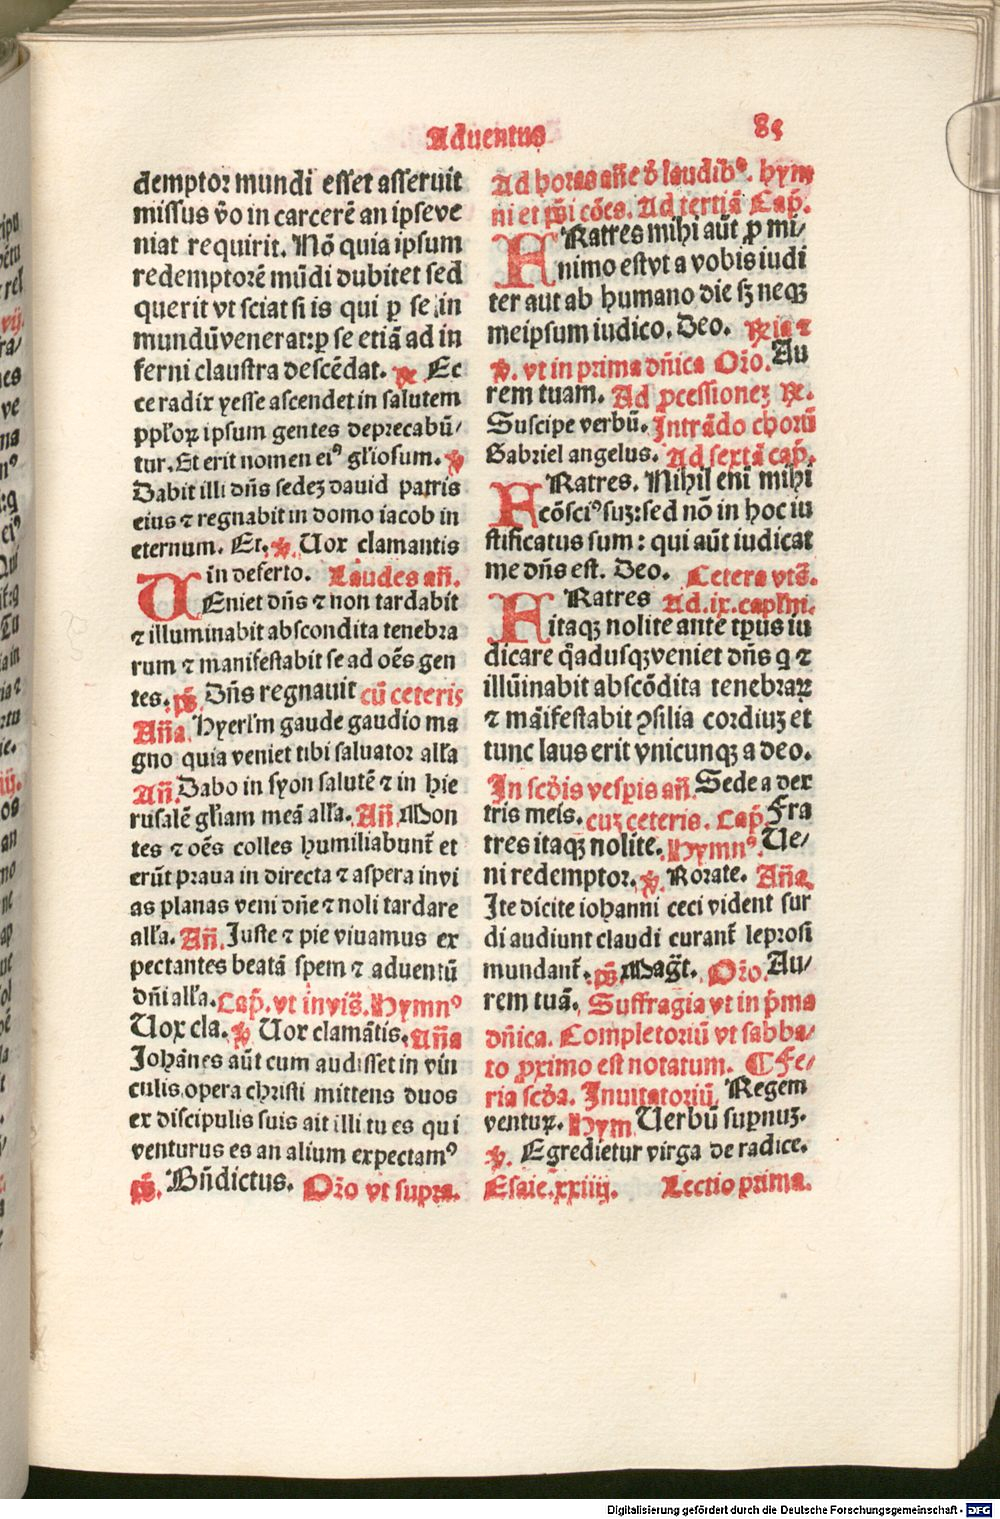 Aduentus
85
demptor mundi esset asseruit
missus v̄o in carcerē an ipse ve
niat requirit. Nō quia ipsum
redemptorē mūdi dubitet sed
querit vt sciat si is qui ꝑ se in
mundū venerat: ꝑ se etiā ad in
ferni claustra descēdat. ℟ Ec
ce radix yesse ascendet in salutem
pp̄loꝝ ipsum gentes deprecabū/
tur. Et erit nomen eiꝰ gl̄iosum. ℣
Dabit illi dn̄s sedeꝫ dauid patris
eius ⁊ regnabit in domo iacob in
eternum. Et. ℣. Uox clamantis
in deserto. Laudes an̄.
UEniet dn̄s ⁊ non tardabit
⁊ illuminabit abscondita tenebra
rum ⁊ manifestabit se ad oēs gen
tes. ps̄. Dn̄s regnauit cū ceteris
An̄a. Hyerl̄m gaude gaudio ma
gno quia veniet tibi saluator all̄a
An̄. Dabo in syon salutē ⁊ in hie
rusalē gl̄iam meā all̄a. An̄. Mon
tes ⁊ oēs colles humiliabunt̄ et
erūt praua in directa ⁊ aspera in vi
as planas veni dn̄e ⁊ noli tardare
all̄a. An̄. Iuste ⁊ pie viuamus ex
pectantes beatā spem ⁊ aduentū
dn̄i all̄a. Cap̄. vt in vis̄. Hymnꝰ
Uox cla. ℣ Uox clamātis. An̄a
Johānes aūt cum audisset in vin
culis opera christi mittens duos
ex discipulis suis ait illi tu es qui
venturus es an alium expectamꝰ
ps̄. Bn̄dictus. Or̄o vt supra.
Ad horas an̄e d̄ laudibꝰ. hym
ni et ps̄i cōes. Ad tertiā Cap̄.
FRatres mihi aūt ꝓ mi/
nimo est vt a vobis iudi
cer aut ab humano die sꝫ neqꝫ
meipsum iudico. Deo. ℟ria ⁊
℣. vt in prima dn̄ica Or̄o. Au
rem tuam. Ad ꝓcessioneꝫ ℟.
Suscipe verbū. Intrādo chorū
Gabriel angelus. Ad sextā cap̄.
FRatres. Nihil eni mihi
cōsciꝰ suꝫ: sed nō in hoc iu
stificatus sum: qui aūt iudicat
me dn̄s est. Deo. Cetera vts̄.
FRatres Ad .ix. capl̄m.
itaqꝫ nolite ante tp̄us iu
dicare q̄adusqꝫ veniet dn̄s q ⁊
illūinabit abscōdita tenebraꝝ
⁊ māifestabit ꝯsilia cordiuꝫ et
tunc laus erit vnicuiqꝫ a deo.
In sc̄dis vesꝑis an̄. Sede a dex
tris meis. cuꝫ ceteris. Cap̄. Fra
tres itaqꝫ nolite. Hymnꝰ. Ue/
ni redemptor. ℣. Rorate. An̄a
Ite dicite iohanni ceci vident sur
di audiunt claudi curant̄ leprosi
mundant̄. ps̄. Maḡt. Or̄o. Au/
rem tuā. Suffragia vt in p̄ma
dn̄ica. Completoriū vt sabba/
to ꝓximo est notatum. ¶ Fe/
ria sc̄da. Inuitatoriū. Regem
ventuꝝ. Hym Uerbū supnuꝫ.
℣. Egredietur virga de radice.
Esaie. xxiiij. Lectio prima.
Digitalisierung gefördert durch die Deutsche Forschungsgemeinschaft - DFG